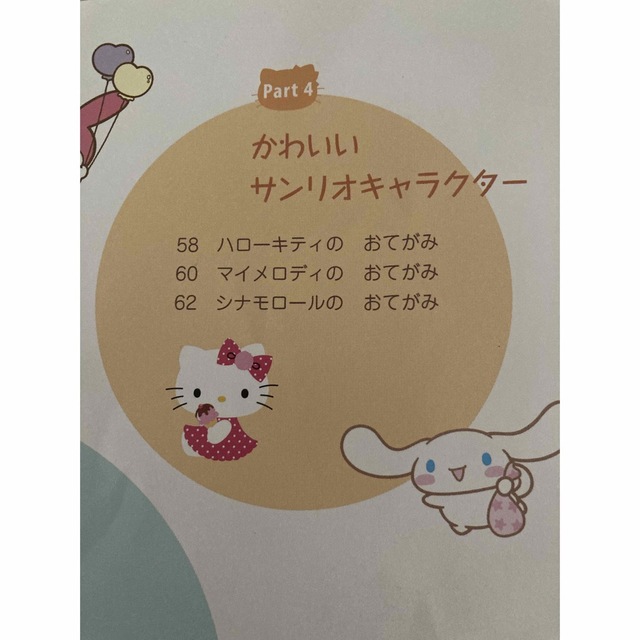 Part 4
かわいい
サンリオキャラクター
58 ハローキティの おてがみ
60 マイメロディの おてがみ
62 シナモロールの おてがみ